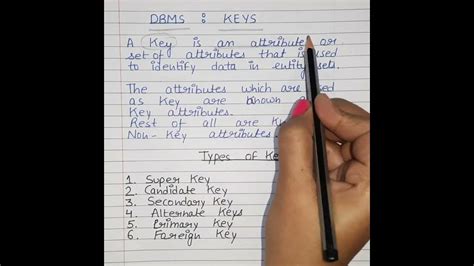 DBMS : KEYS
A Key is an attribute or
set of attributes that is used
to identify data in entity sets.
The attributes which are
as Key are known
Key attributes.
Rest of all are
Non-Key attributes.
Types of
1. Super Key
2. Candidate Key
3. Secondary Key
4. Alternate Keys
5. Primary Key
6. Foreign Key